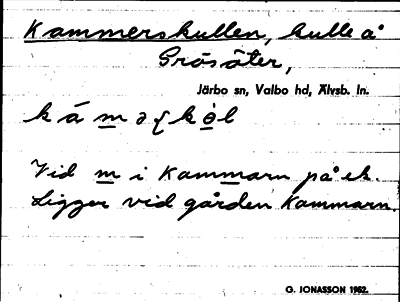 Kammerskullen, kulle å
Gräsäter,
Järbo sn, Valbo hd, Älvsb. ln.
Vid m i Kammarn på ek.
Ligger vid gården Kammarn.
G. JONASSON 1952.